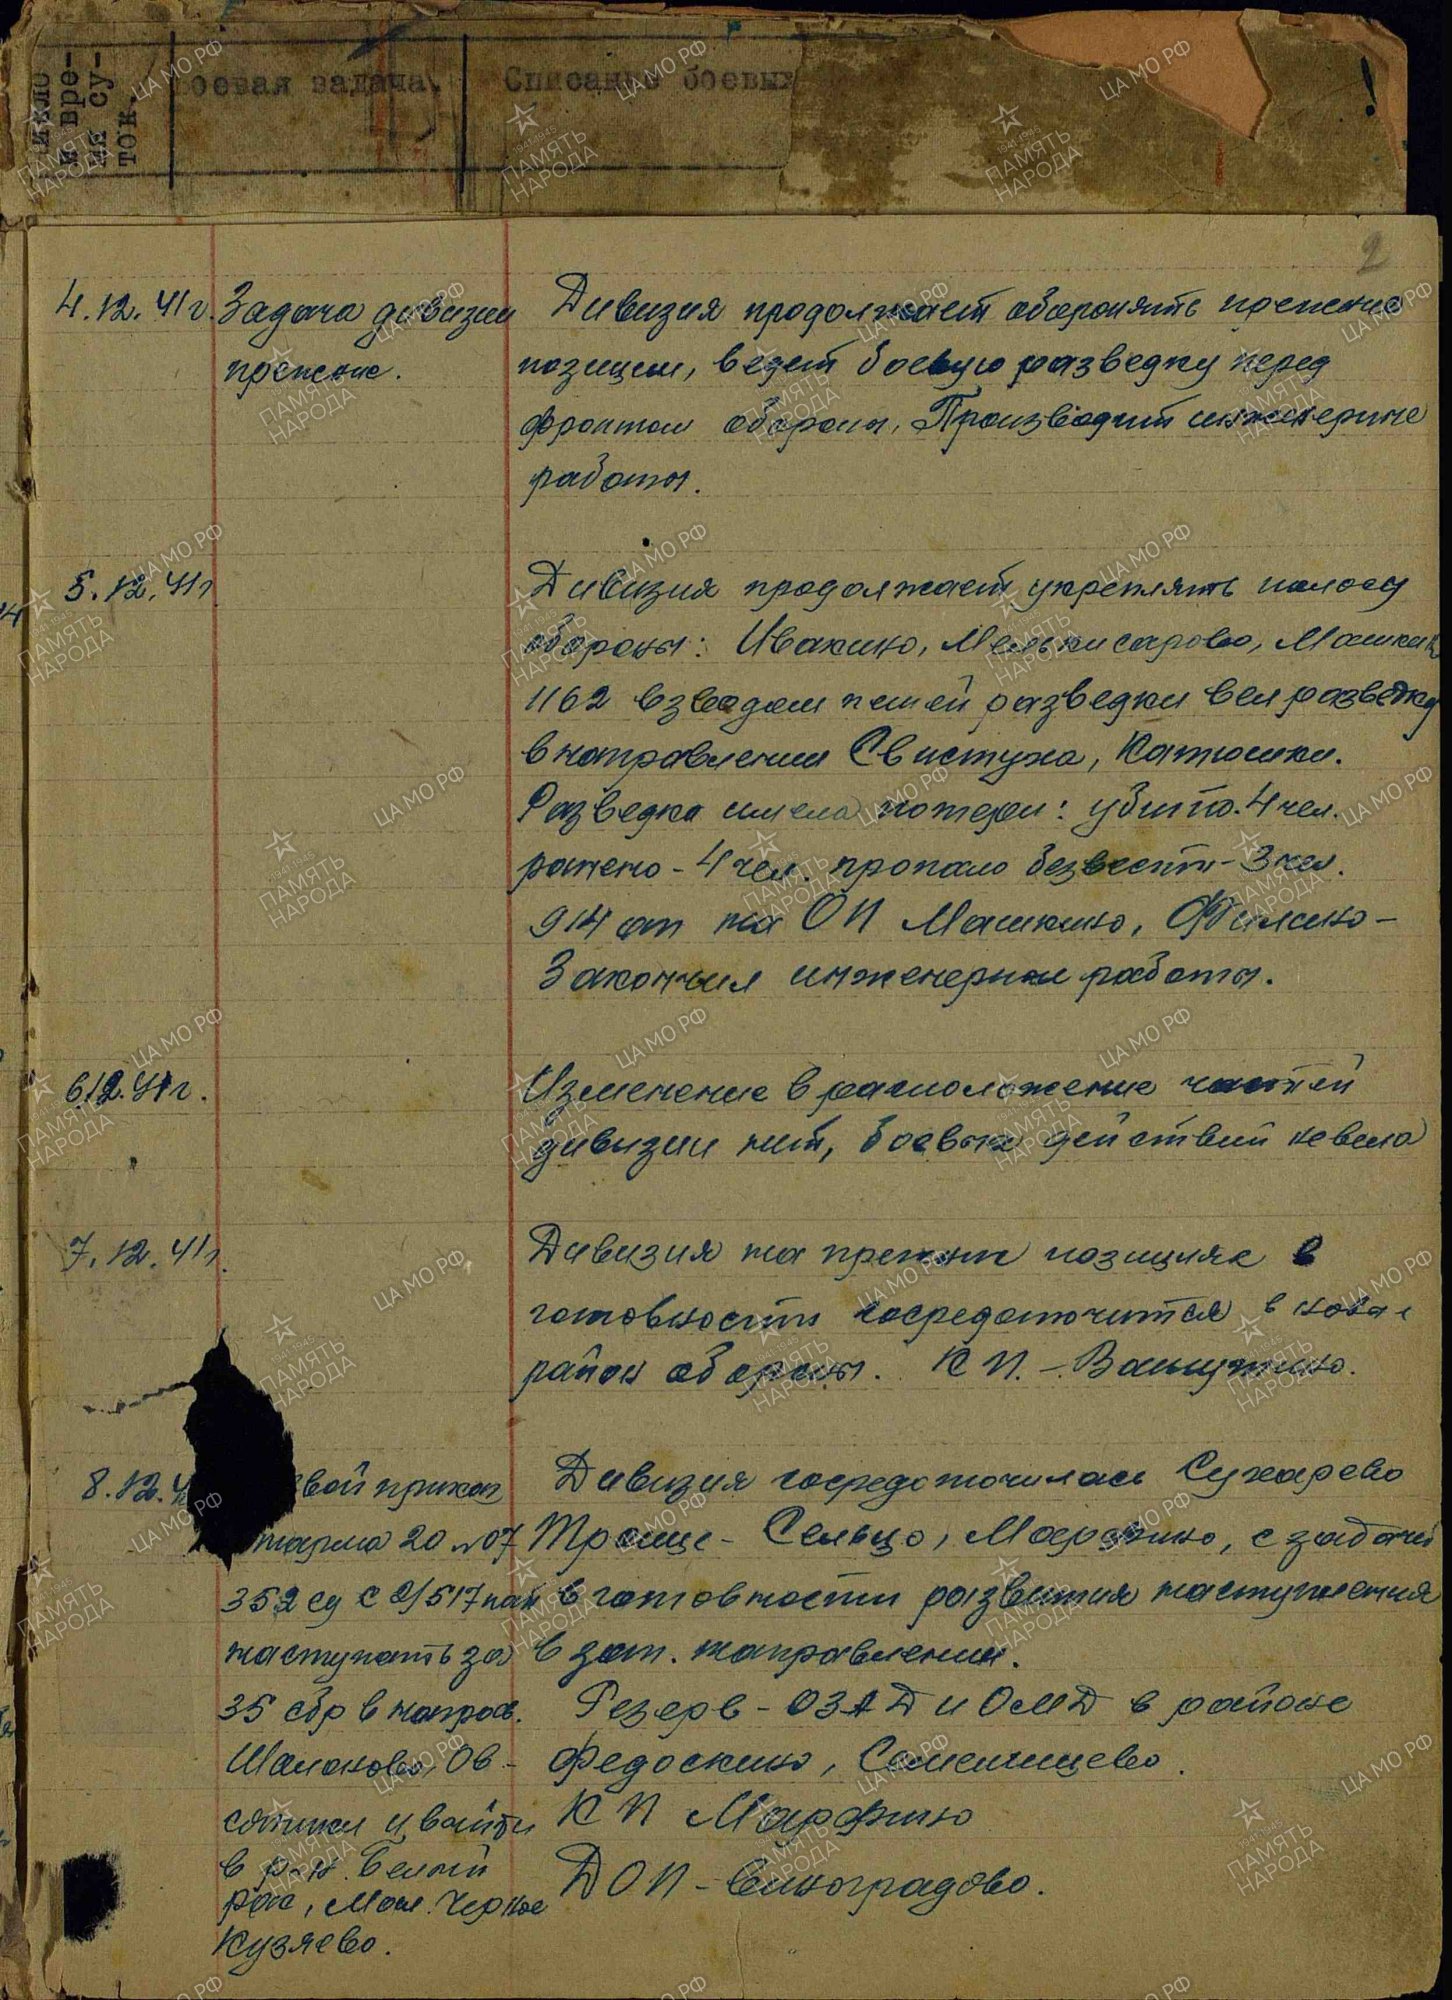 число
и вре-
мя су-
ток.
боевая задача.
Списание боевых
2
4.12.41г.
Задача дивизии
прежняя.
Дивизия продолжает оборонять прежние
позиции, ведет боевую разведку перед
фронтом обороны, Производит инженерные
работы.
5.12.41г
Дивизия продолжает укреплять полосу
обороны: Ивакино, Мелькисарово, Машкин
1162 взводом пешей разведки вел разведку
в направлении Свистуха, Катюшки.
Разведка имела потери: убито-4 чел.
ранено-4 чел. пропало безвести-3 чел.
914 ап на ОП Машкино, Филино-
Закончил инженерные работы.
6.12.41г.
Изменение в расположение частей
дивизии нет, боевых действий не вела
7.12.41г.
Дивизия на прежних позициях в
готовности сосредоточится в новый
район обороны. КП.-Ванутино.
8.12.4
евой приказ
тарма 20 №07
352 сд с 2/517 пап
наступать за
35 сбр в направ.
Шалахово, Ов-
сянники и выйти
в р-н Белый
раст, Мал. Черное
Кузяево.
Дивизия сосредоточилась Сухарево
Троице-Сельцо, Марфино, с задачей
в готовности развития наступления
в зап. направлении.
Резерв-ОЗАД и ОМД в районе
Федоскино, Семенищево.
КП Марфино
ДОП-Виноградово.
ЦА МО РФ
ПАМЯТЬ
НАРОДА
1941-1945